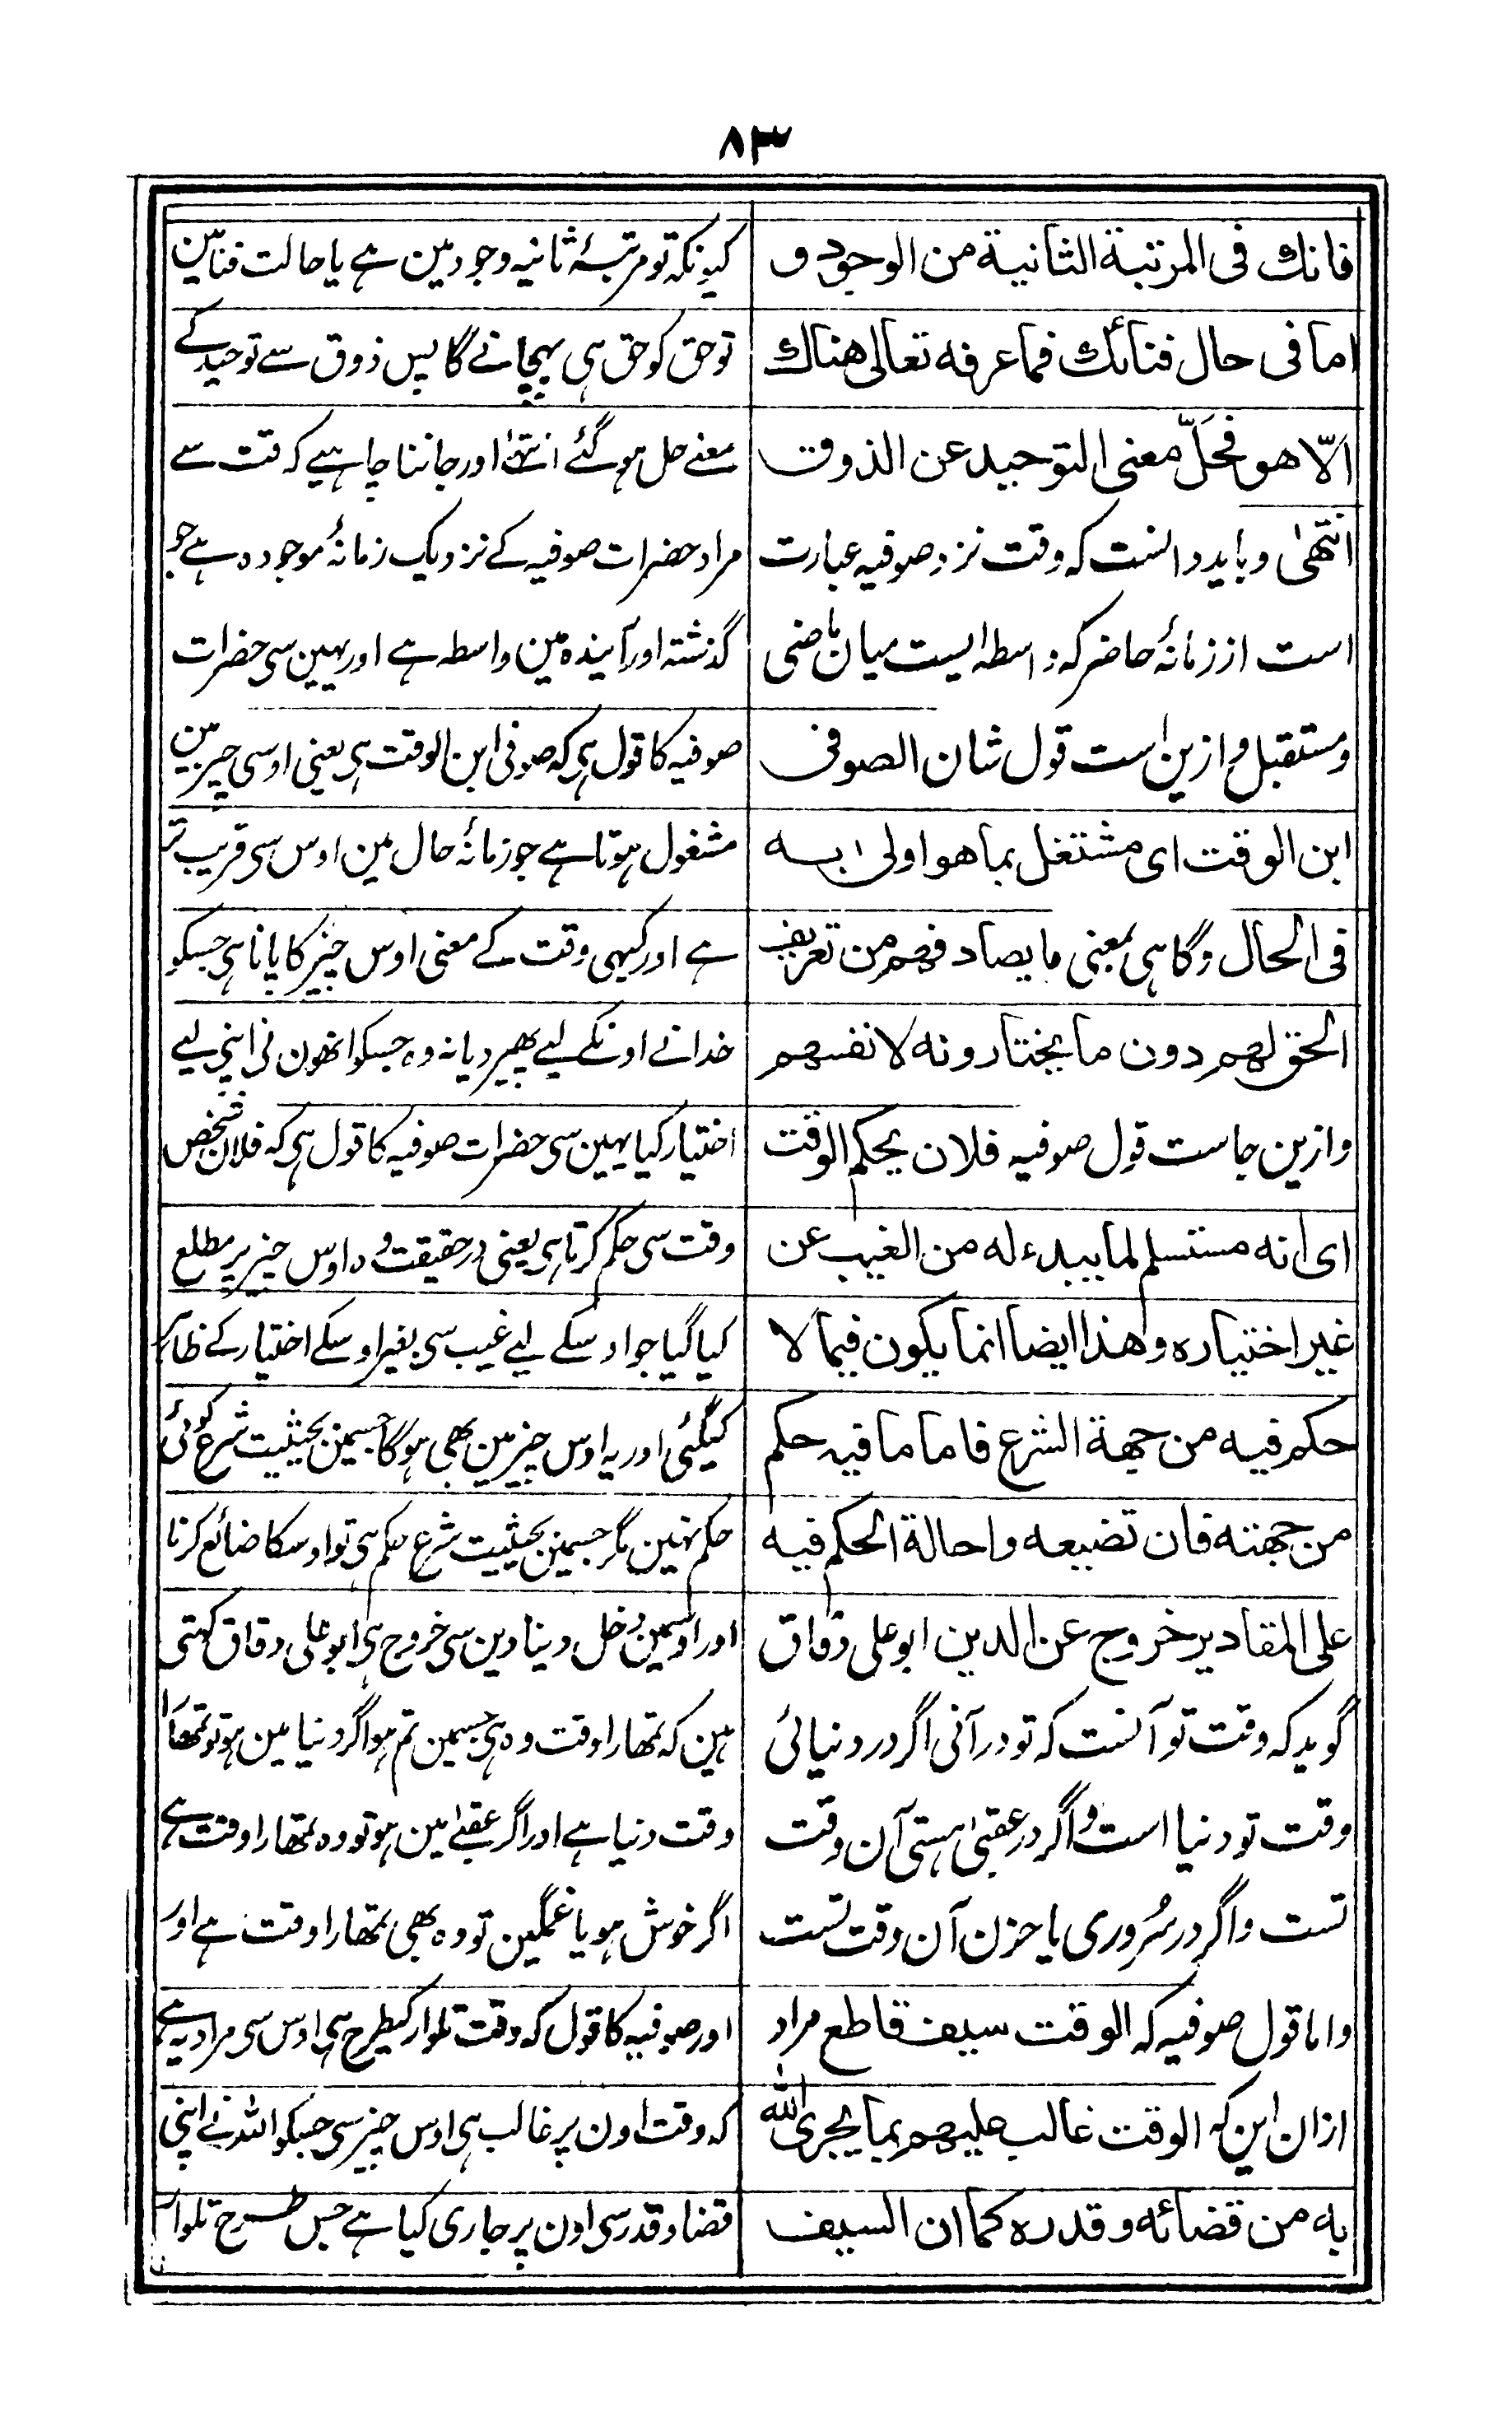 ۸۳
فانك فى المرتبة الثانية من الوجود و
اما فى حال فنائك فما عرفه تعالى هناك
الّا هو فحَلّ معنى التوحيد عن الذوق
انتهىٰ و باید دانست که وقت نزد صوفیه عبارت
است از زمانۂ حاضر که واسطه ایست میان ماضی
و مستقبل و ازین است قول شان الصوفى
ابن الوقت اى مشتغل بما هو اولى به
فى الحال و گاہی بمعنی ما یصادفهم من تعریف
الحق لهم دون ما يختارونه لانفسهم
و ازین جاست قول صوفیه فلان بحکم الوقت
اى انه مستسلم لما يبدء له من الغيب عن
غير اختياره و هذا ايضا انما يكون فيما لا
حكم فيه من جهة الشرع فاما ما فيه حكم
من جهته فان تضيعه و احالة الحكم فيه
على المقادير خروج عن الدين ابو علی دقاق
گوید که وقت تو آنست که تو در آنی اگر در دنیائی
وقت تو دنیا است و اگر در عقبیٰ ہستی آن وقت
تست و اگر در سُروری یا حزن آن وقت تست
و اما قول صوفیه که الوقت سیف قاطع مراد
ازان این که الوقت غالب عليهم بما يجرى الله
به من قضائه و قدره كما ان السيف
کیونکہ تو مرتبۂ ثانیہ وجود مین ہے یا حالت فنا مین
تو حق کو حق ہی پہچانے گا پس ذوق سے توحید کے
معنے حل ہو گئے انتہیٰ اور جاننا چاہیے کہ وقت سے
مراد حضرات صوفیہ کے نزدیک زمانۂ موجودہ ہے جو
گذشتہ اور آیندہ مین واسطہ ہے اور یہین سی حضرات
صوفیہ کا قول ہی کہ صوفی ابن الوقت ہی یعنی اوسی چیز مین
مشغول ہوتا ہے جو زمانۂ حال مین اوس سی قریب تر
ہے اور کبھی وقت کے معنی اوس چیز کا پانا ہی جسکو
خدانے اونکے لیے پھیر دیا نہ وہ جسکو انھون نی اپنی لیے
اختیار کیا یہین سی حضرات صوفیہ کا قول ہی کہ فلان شخص
وقت سی حکم کرتا ہی یعنی درحقیقت وہ اوس چیز پر مطلع
کیا گیا جو اوسکے لیے غیب سی بغیر اوسکے اختیار کے ظاہر
کیگئی اور یہ اوس چیز مین بھی ہوگا جسمین بحیثیت شرع کوئی
حکم نہین مگر جسمین بحیثیت شرع حکم ہی تو اوسکا ضائع کرنا
اور اوسمین دخل دینا دین سی خروج ہی ابو علی دقاق کہتی
ہین کہ تمھارا وقت وہ ہی جسمین تم ہو اگر دنیا مین ہو تو تمھارا
وقت دنیا ہے اور اگر عقبےٰ مین ہو تو وہ تمھارا وقت ہے
اگر خوش ہو یا غمگین تو وہ بھی تمھارا وقت ہے اور
اور صوفیہ کا قول کہ وقت تلوار کیطرح ہی اوس سی مراد یہ ہے
کہ وقت اون پر غالب ہی اوس چیز سی جسکو اللہ نے اپنی
قضا و قدر سی اون پر جاری کیا ہے جس طرح تلوار